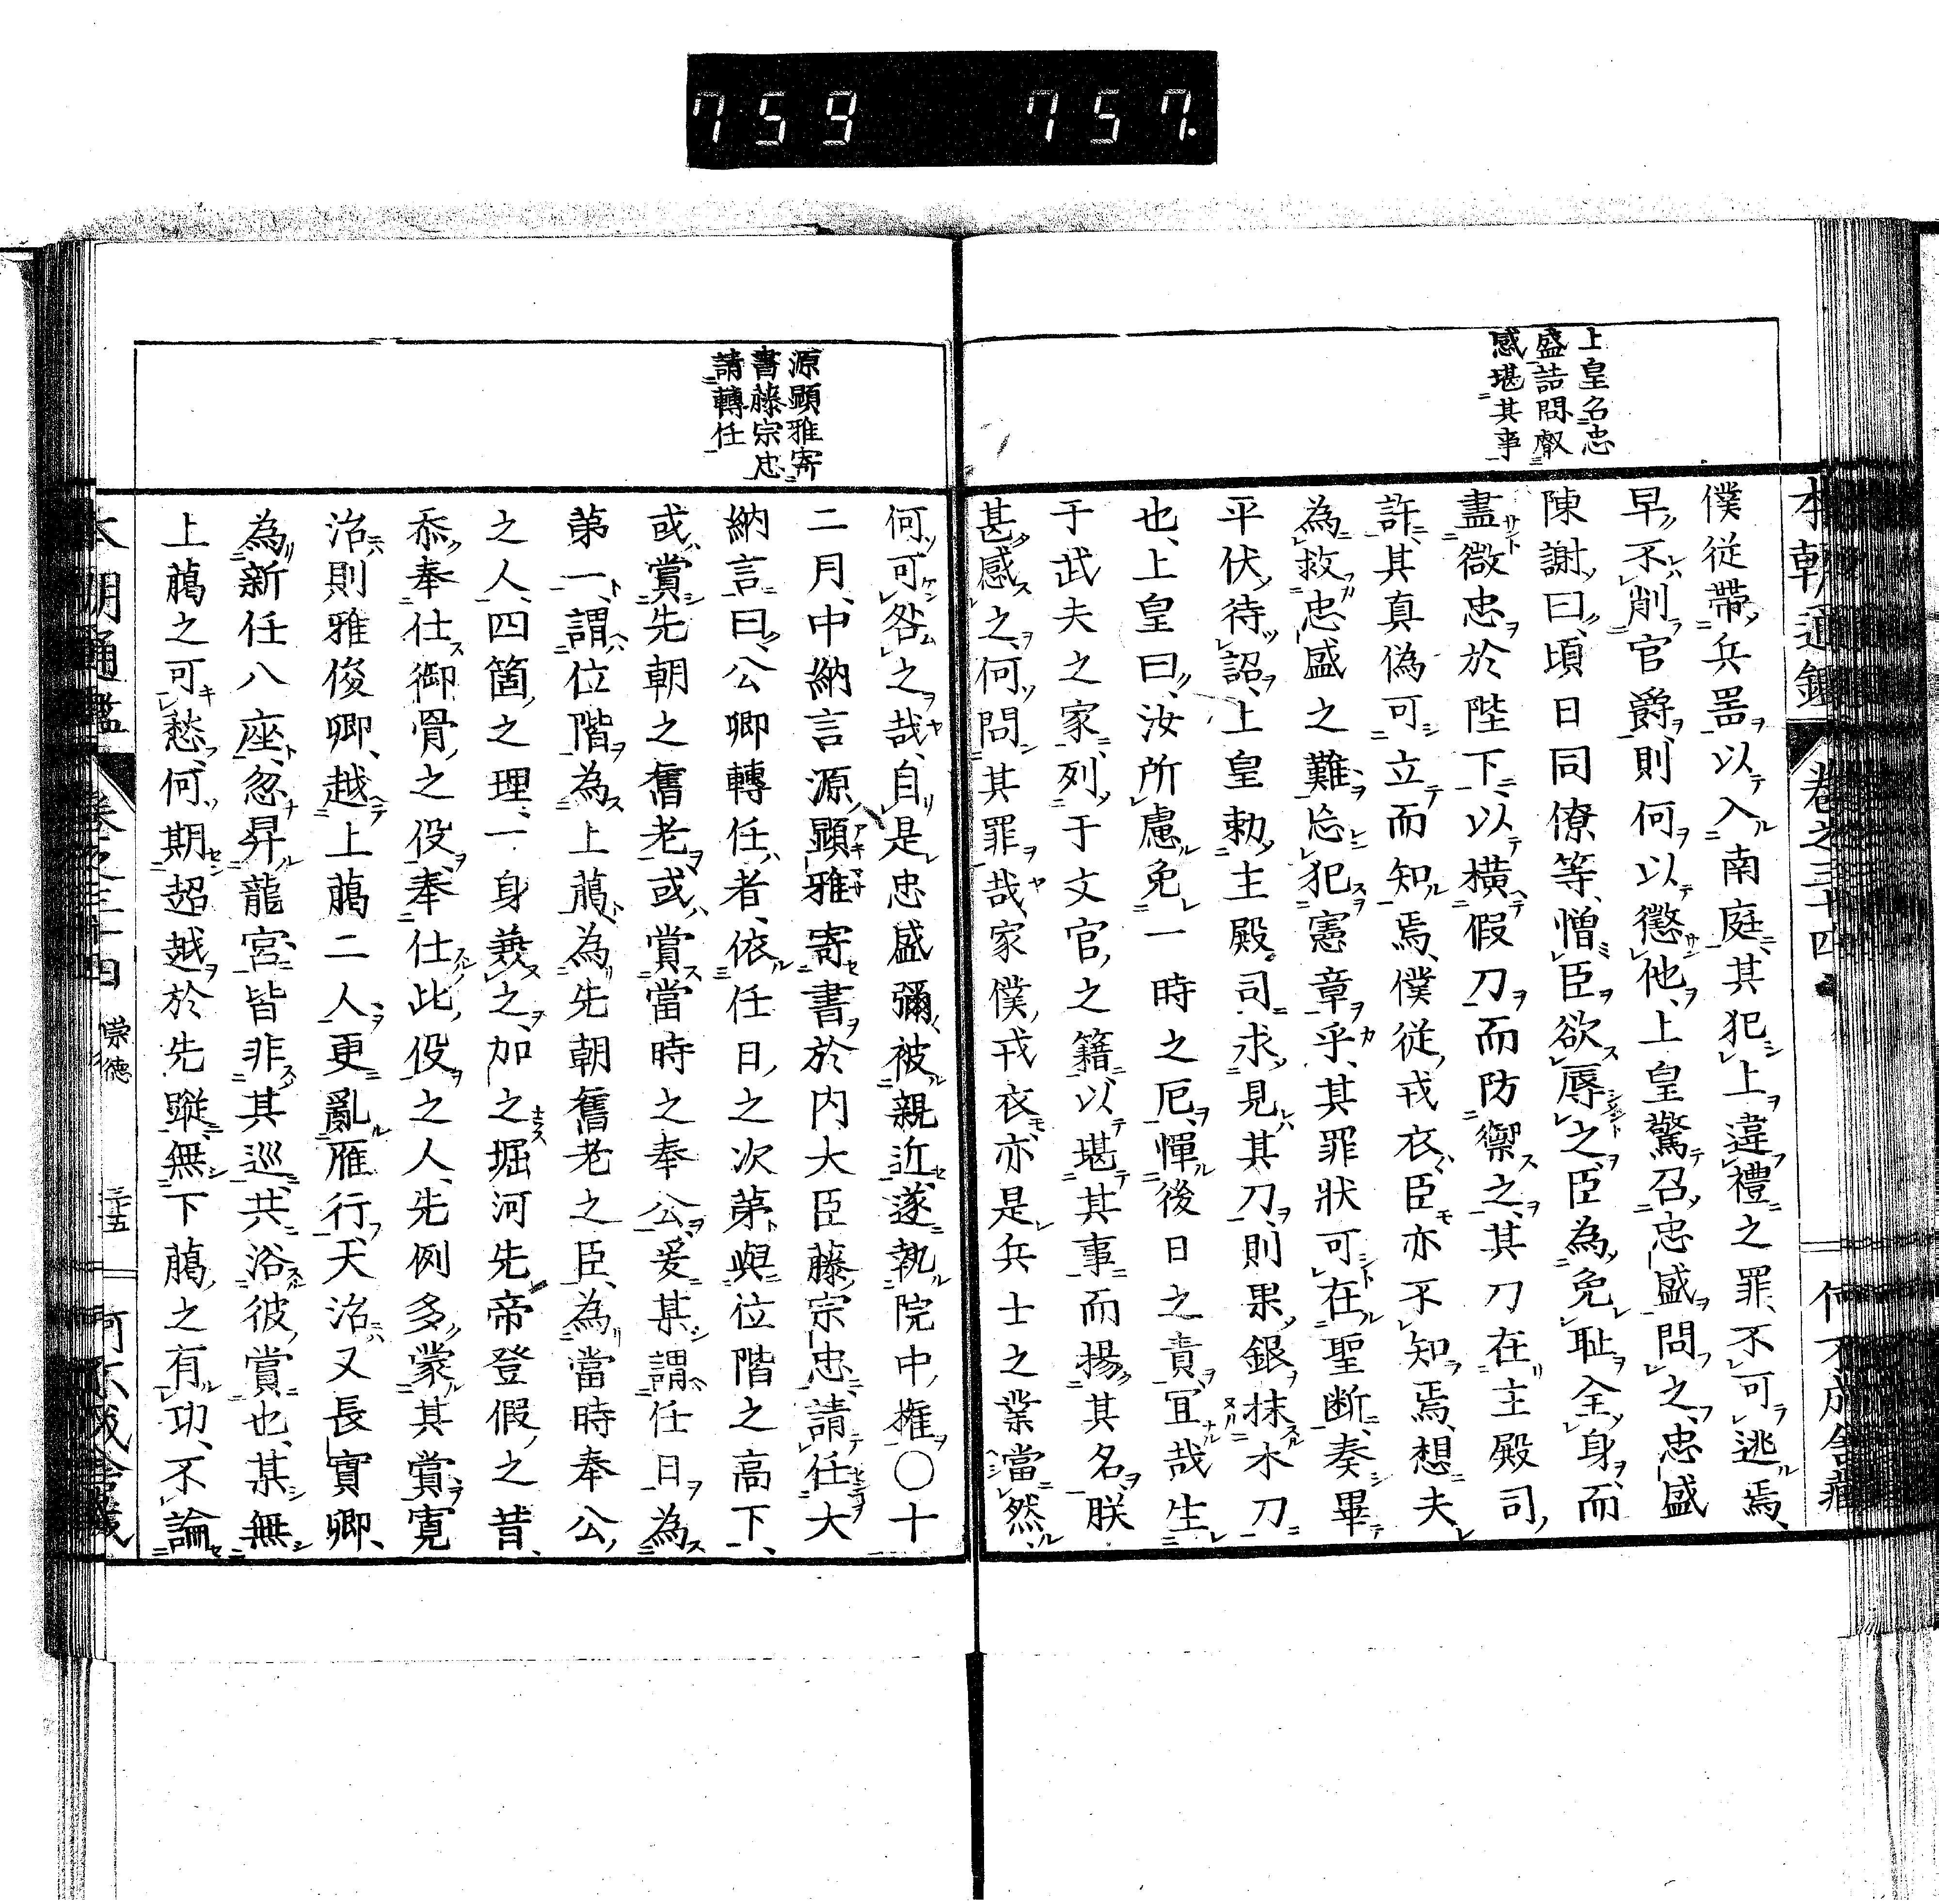 759 757.
上皇召忠
盛詰問叡
感堪其事
僕從帶兵噐以入南庭其犯上違禮之罪不可逃焉
早不削官爵則何以懲他上皇驚召忠盛問之忠盛
陳謝曰頃日同僚等憎臣欲辱之臣為免耻全身而
盡微忠於陛下以横假刀而防禦之其刀在主殿司
許其真偽可立而知焉僕從戎衣臣亦不知焉想夫
為救忠盛之難忘犯憲章乎其罪狀可在聖断奏畢
平伏待詔上皇勅主殿司求見其刀則果銀抹木刀
也上皇曰汝所慮免一時之厄憚後日之責宜哉生
于武夫之家列于文官之籍以堪其事而揚其名朕
甚感之何問其罪哉家僕戎衣亦是兵士之業當然
本朝通鑑 卷之三十四
何不成舍藏
源顕雅寄
書藤宗忠
請轉任
何可咎之哉自是忠盛彌被親近遂執院中権〇十
二月中納言源顕雅寄書於内大臣藤宗忠請任大
納言曰公卿轉任者依任日之次第與位階之高下
或賞先朝之舊老或賞當時之奉公爰某謂任日為
第一謂位階為上﨟為先朝舊老之臣為當時奉公
之人四箇之理一身兼之加之堀河先帝登假之昔
忝奉仕御骨之役奉仕此役之人先例多蒙其賞寛
治則雅俊卿越上﨟二人更亂雁行天治又長實卿
為新任八座忽昇龍宮皆非其巡共浴彼賞也某無
上﨟之可愁何期超越於先蹤無下﨟之有功不論
本朝通鑑 卷之三十四 崇德 三十五
何不成舍藏